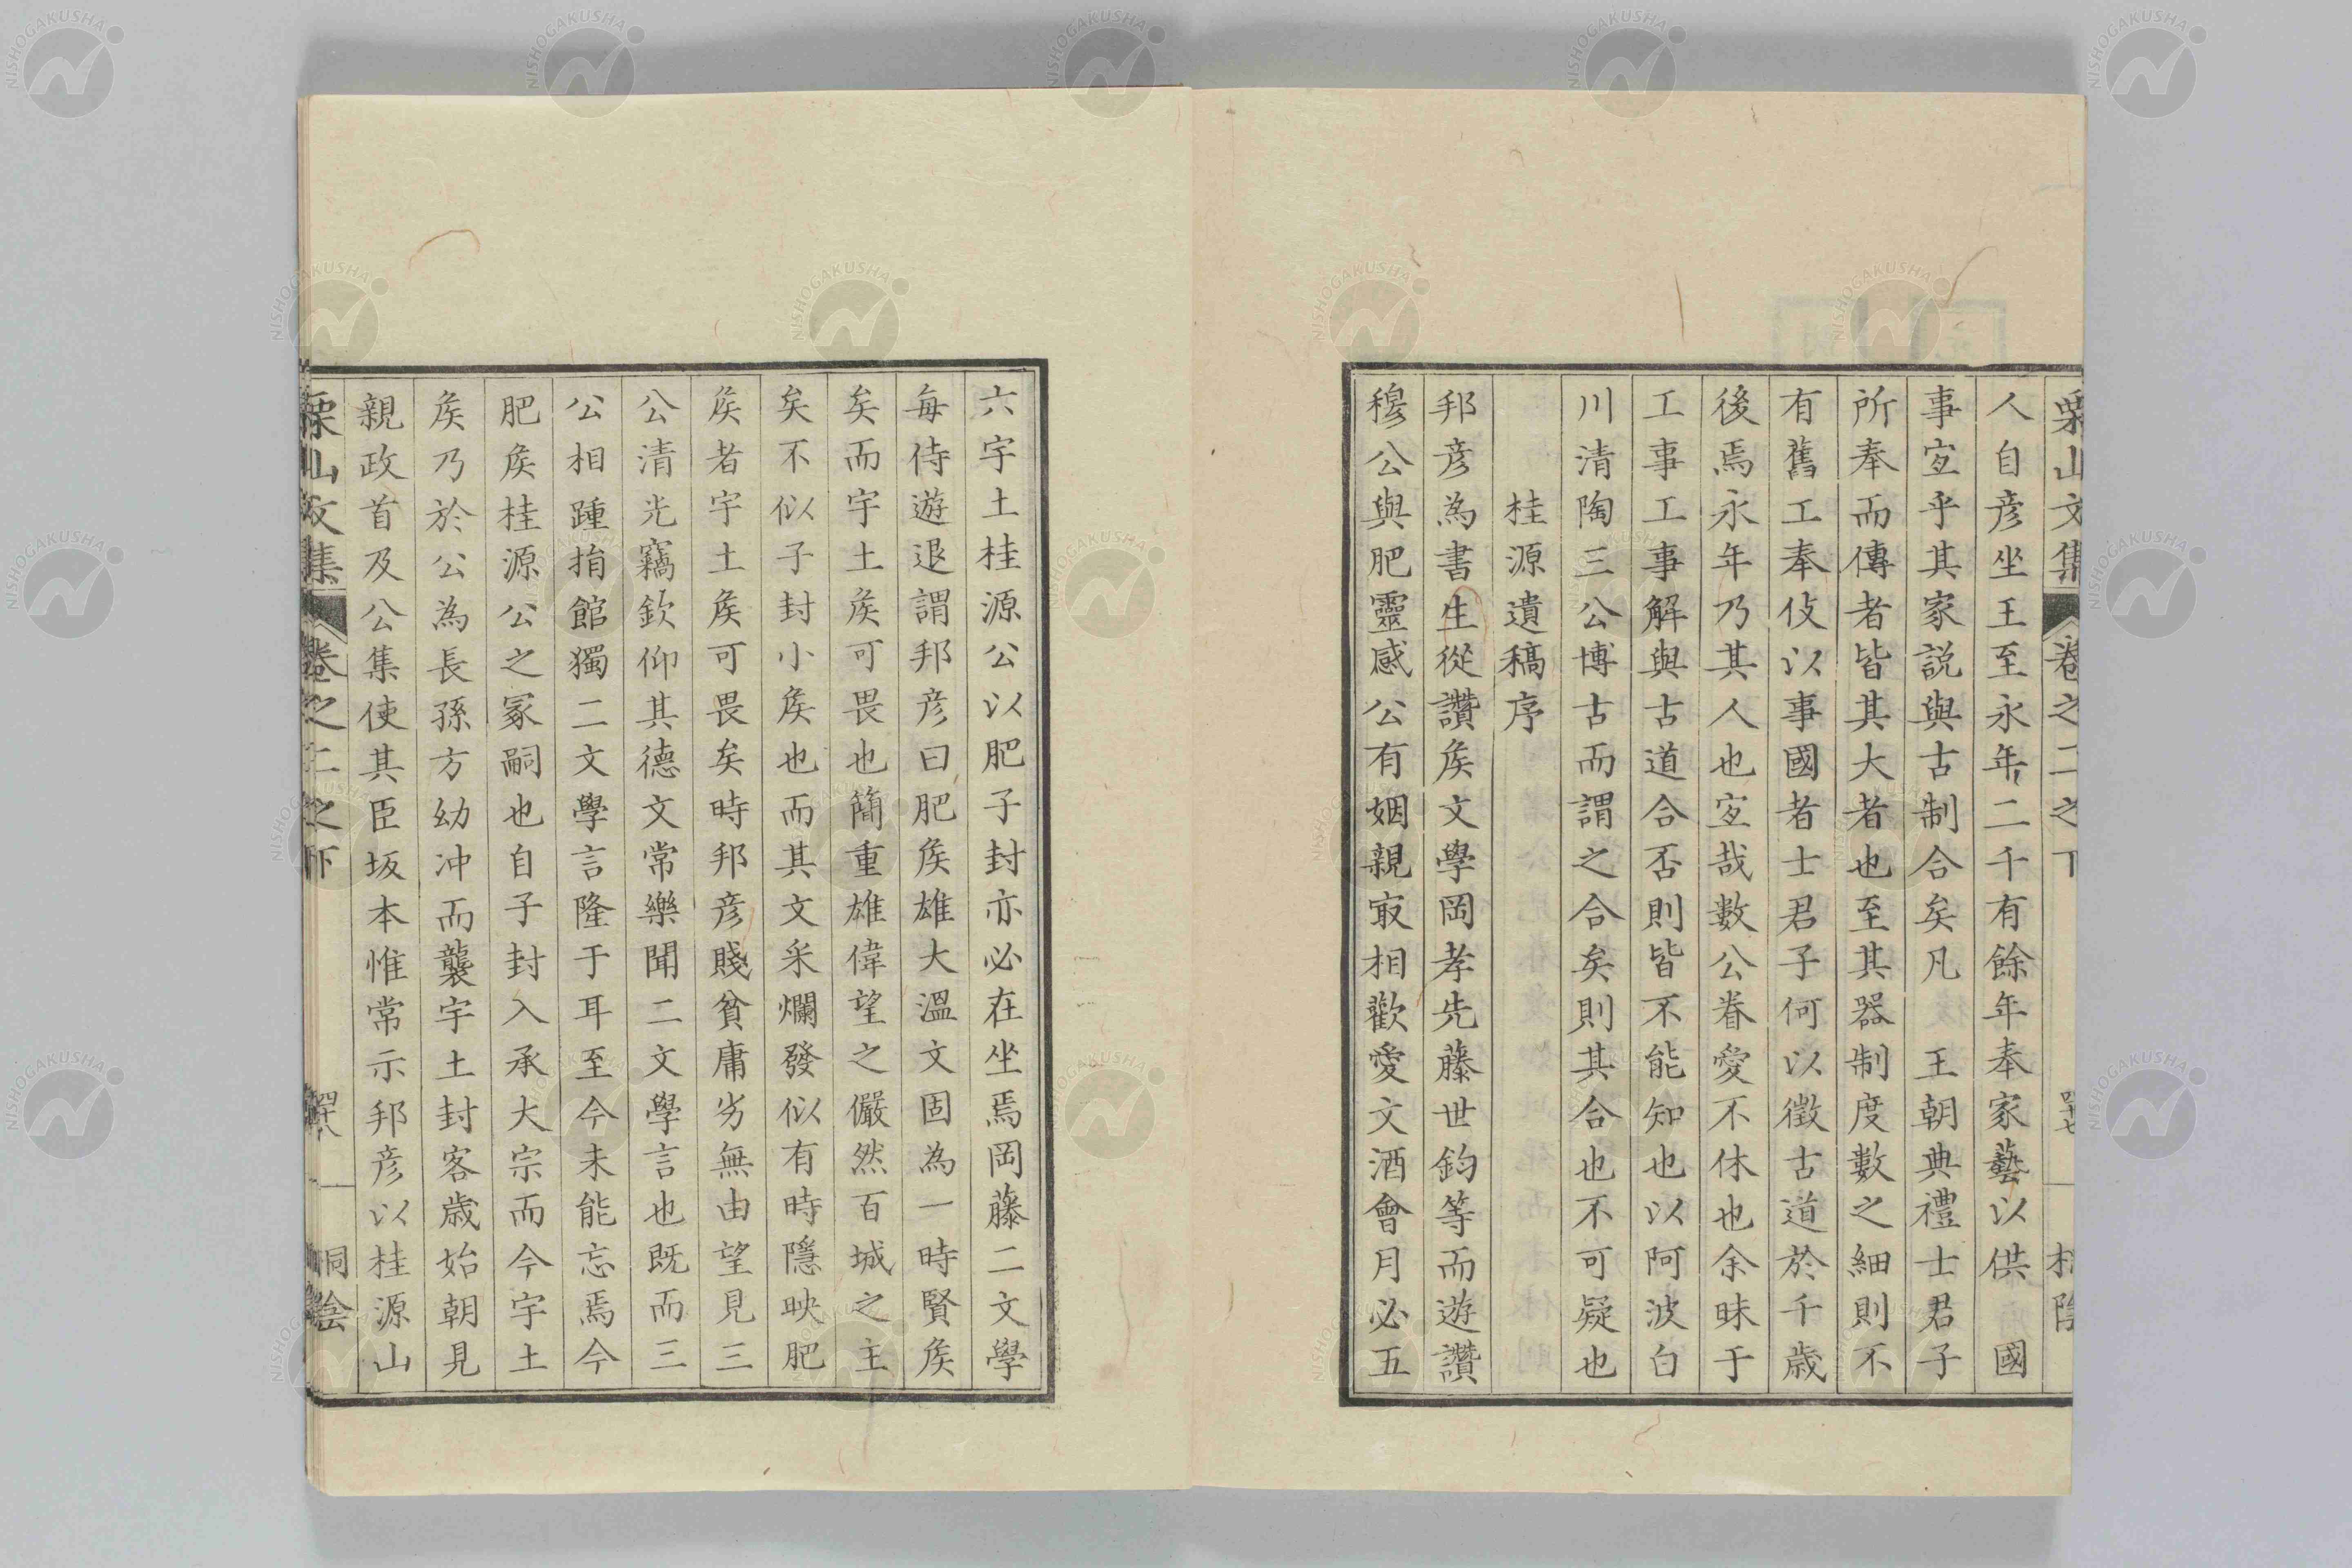 栗山文集 卷之二之下
人自彦坐王至永年二千有餘年奉家藝以供 國
事宐乎其家説與古制合矣凡 王朝典禮士君子
所奉而傳者皆其大者也至其器制度數之細則不
有舊工奉伎以事國者士君子何以徵古道於千歳
後焉永年乃其人也宐哉數公眷愛不休也余昧于
工事工事解與古道合否則皆不能知也以阿波白
川清陶三公博古而謂之合矣則其合也不可疑也
桂源遺稿序
邦彦為書生從讚矦文學岡孝先藤世鈞等而遊讚
穆公與肥靈感公有姻親㝡相歡愛文酒會月必五
六宇土桂源公以肥子封亦必在坐焉岡藤二文學
每侍遊退謂邦彦曰肥矦雄大溫文固為一時賢矦
矣而宇土矦可畏也簡重雄偉望之儼然百城之主
矣不似子封小矦也而其文采爛發似有時隱映肥
矦者宇土矦可畏矣時邦彦賤貧庸劣無由望見三
公清光竊欽仰其德文常樂聞二文學言也既而三
公相踵捐館獨二文學言隆于耳至今未能忘焉今
肥矦桂源公之冢嗣也自子封入承大宗而今宇土
矦乃於公為長孫方幼冲而襲宇土封客歳始朝見
親政首及公集使其臣坂本惟常示邦彦以桂源山
栗山文集 卷之二之下 桐陰
NISHOGAKUSHA